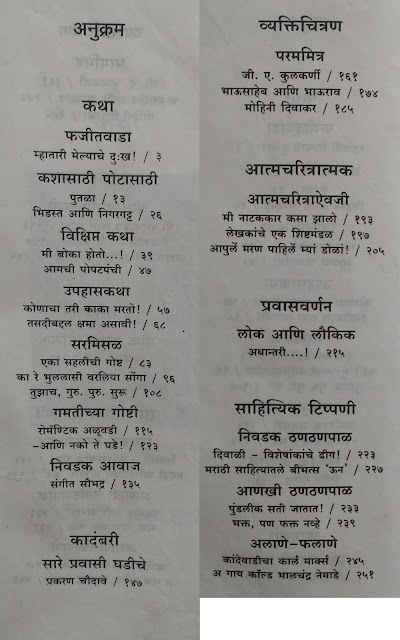 अनुक्रम
कथा
फजीतवाडा
म्हातारी मेल्याचे दुःख! / ३
कशासाठी पोटासाठी
पुतळा / १३
भिडस्त आणि निगरगट्ट / २६
विक्षिप्त कथा
मी बोका होतो...! / ३९
आमची पोपटपंची / ४७
उपहासकथा
कोणाचा तरी काका मरतो! / ५७
तसदीबद्दल क्षमा असावी! / ६८
सरमिसळ
एका सहलीची गोष्ट / ८३
का रे भुललासी वरलिया सोंगा / ९६
तुझाच, गुरु. पुरु. सुरू / १०८
गमतीच्या गोष्टी
रोमॅण्टिक अळूवडी / ११५
–आणि नको ते घडे! / १२३
निवडक आवाज
संगीत सौभद्र / १३५
कादंबरी
सारे प्रवासी घडीचे
प्रकरण चौदावे / १४७
व्यक्तिचित्रण
परममित्र
जी. ए. कुलकर्णी / १६१
भाऊसाहेब आणि भाऊराव / १७४
मोहिनी दिवाकर / १८५
आत्मचरित्रात्मक
आत्मचरित्राऐवजी
मी नाटककार कसा झालो / १९३
लेखकांचे एक शिष्टमंडळ / १९७
आपुलें मरण पाहिलें म्यां डोळां! / २०५
प्रवासवर्णन
लोक आणि लौकिक
अधान्तरी....! / २१५
साहित्यिक टिप्पणी
निवडक ठणठणपाळ
दिवाळी – विशेषांकांचे ढीग! / २२३
मराठी साहित्यातले बीभत्स ‘ऊन’ / २२७
आणखी ठणठणपाळ
पुंडलीक सती जातात! / २३३
भक्त, पण फक्त नव्हे / २३९
अलाणे–फलाणे
कांदेवाडीचा कार्ल मार्क्स / २४५
अ गाय कॉल्ड भालचंद्र नेमाडे / २५१